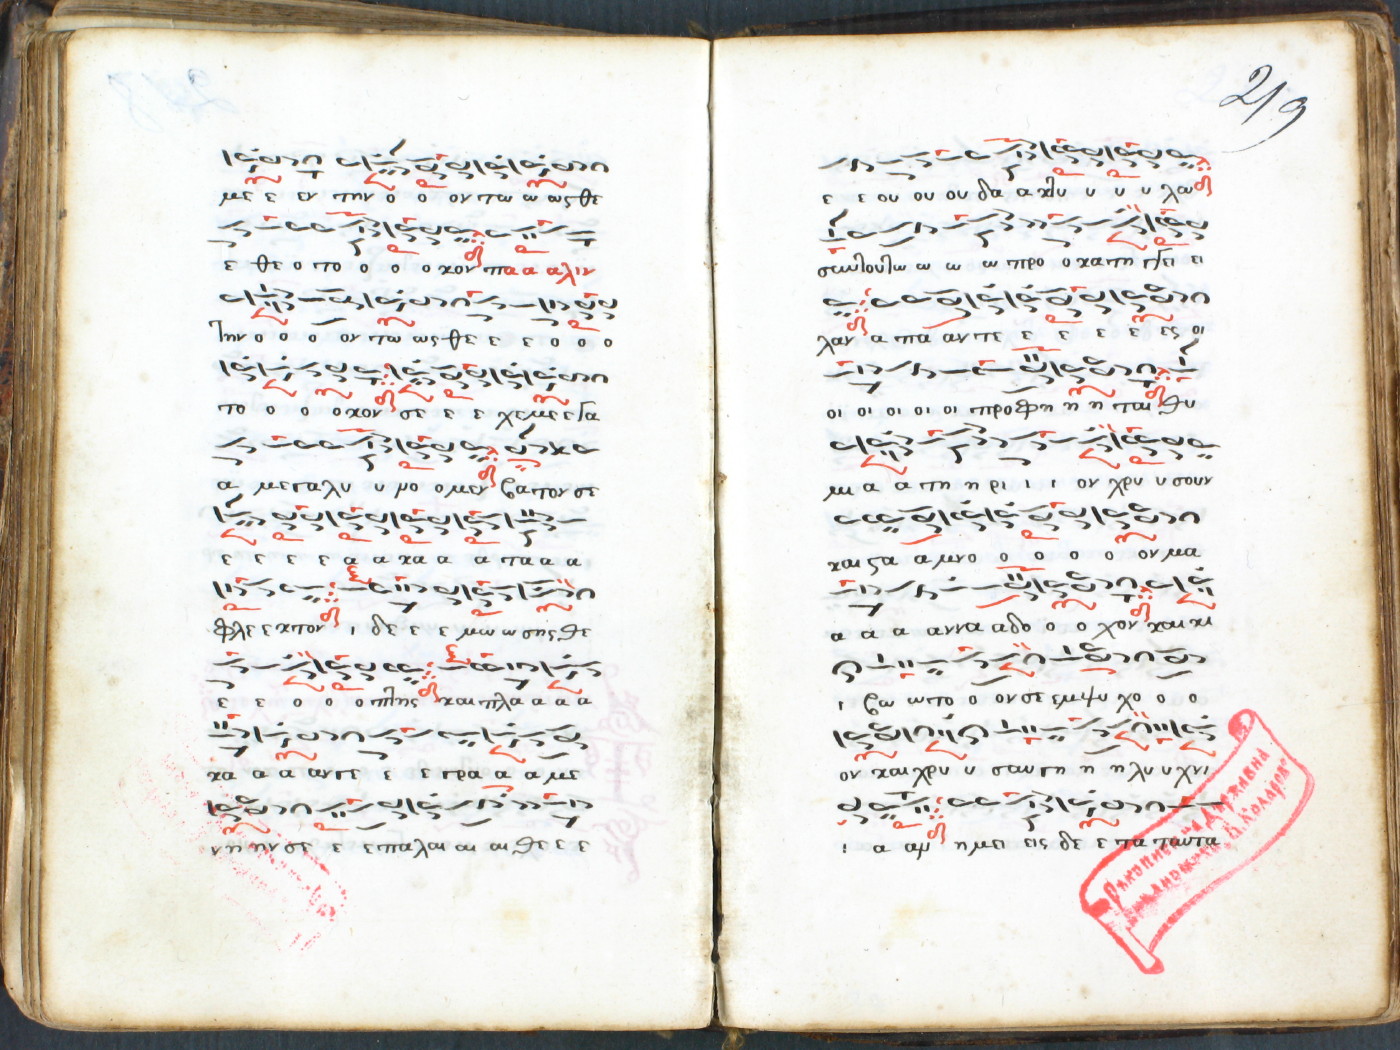 με ε εν την ο ο ον πω ω ως θε
ε θε ο το ο ο ο κον πα α α λιν
την ο ο ο ον πω ως θε ε ε ο ο ο
το ο ο ο κον σε ε ε χε με ε τα
α με γα λυ υ νο ο μεν βα τον σε
ε ε ε ε α α κα α α τα α α
φλε ε κτον ι δε ε ε μω ω σης θε
ε ε ο ο ο πτης και πλα α α α
κα α α αν τε ε ε τρα α α με
νη ην σε ε ε πα λαι αι αι θε ε ε
219
ε ε ου ου ου δα α κτυ υ υ υ λω
σαυτου τω ω ω ω προ ο κα τη γγει ει
λαν α πα αν τε ε ε ε ε ες οι
οι οι οι οι οι προ φη η η ται θυ
μι α α τη η ρι ι ι ον χρυ υ σουν
και στα α μνο ο ο ο ο ον μα
α α α αν να α δο ο ο χον και κι
ι βω ω το ο ον σε εμ ψυ χο ο ο
ον και χρυ υ σαυγη η η λυ υ χνι
ι α αν η μει εις δε ε τα ταυτα
Ръкописна "Държавна
библиотека В. Коларов"